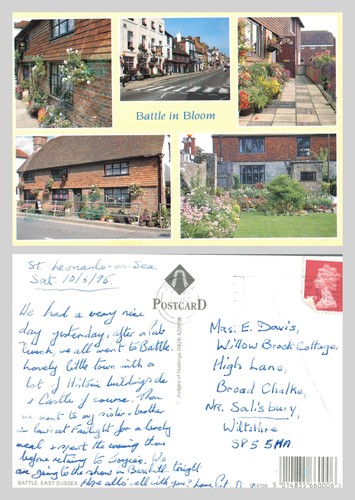 Battle in Bloom
St. Leonards-on-Sea
Sat. 10/6/95.
We had a very nice
day yesterday, after a late
lunch, we all went to Battle.
Lovely little town with a
lot of historic buildings &
a Castle of course. Then
we went to my sister & brother
in law's at Fairlight for a lovely
meal & spent the evening there
before returning to
We
are going to the show in Bexhill tonight.
Hope all's well with you? Love
BATTLE, EAST SUSSEX
POSTCARD
© Judges of Hastings
Mrs. E. Davis,
Willow Brook Cottage,
High Lane,
Broad Chalke,
Nr. Salisbury,
Wiltshire
SP5 5HA